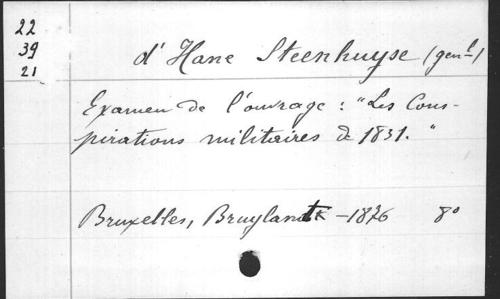 22
39
21
d'Hane Steenhuyse (genl)
Examen de l'ouvrage : "Les Cons-
pirations militaires de 1831."
Bruxelles, Bruylant - 1876 8º